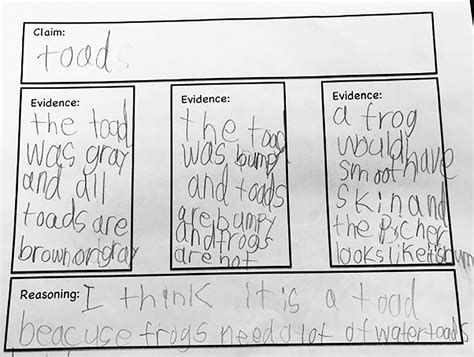 Claim:
toad
Evidence:
the toad
was gray
and all
toads are
brown or gray
Evidence:
the toad
was bumpy
and toads
are bumpy
and frogs
are not
Evidence:
a frog
would have
smooth
skin and
the Picher
looks like it's bum
Reasoning: I think it is a toad
beacuse frogs need a lot of water toads